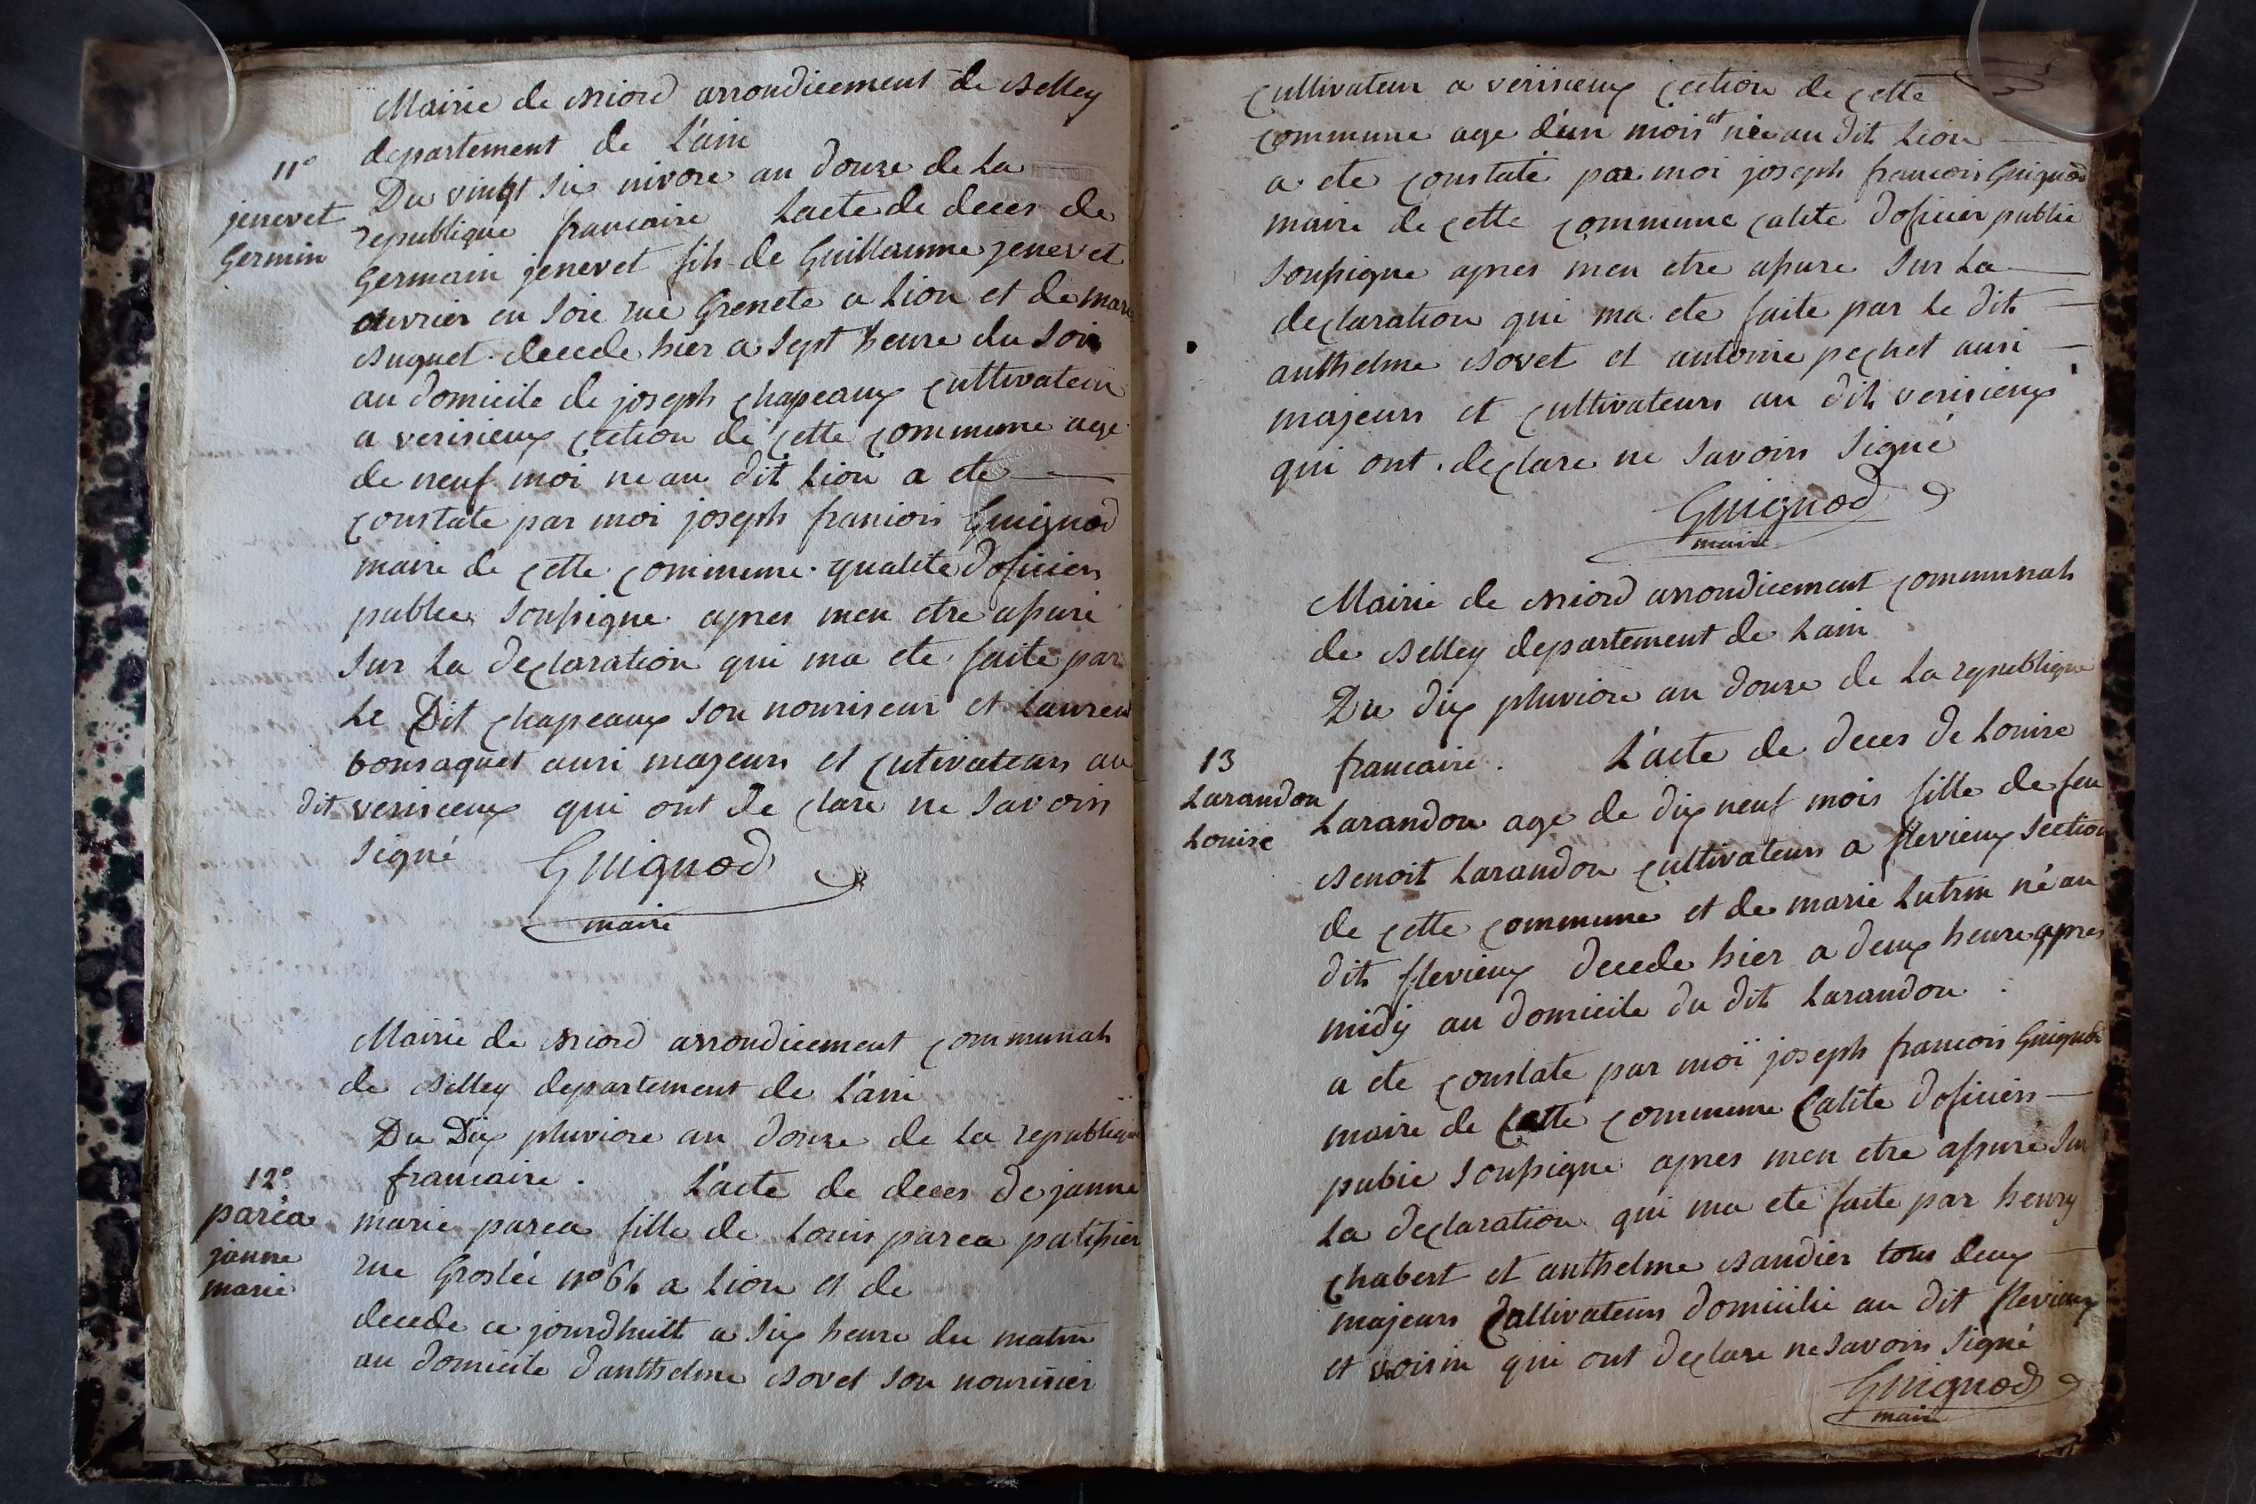 Mairie de Briord arrondicement de Belley
departement de L'ain
11°
jenevet
Germin
Du vingt six nivose an douze de La
republique francaise Lacte de deces de
Germain jenevet fils de Guillaume jenevet
ouvrier en soie rue Grenete a Lion et de marie
Buquet decede hier a sept heure du soir
au domicile de joseph chapeaux cultivateur
a verisieux cection de cette commune age
de neuf moi ne au dit Lion a ete
constate par moi joseph francois Guignod
maire de cette commune qualite doficier
publie soussigne apres men etre assuré
sur La declaration qui ma ete faite par
Le Dit chapeaux son nouriseur et Lauren
bonsaquet aussi majeurs et cutivateurs au
dit verisieux qui ont de clare ne savoir
signé Guignod
maire
Mairie de Briord arrondicement communals
de Belley departement de L'ain
Du Dix pluviose an douze de La republique
francaise. L'acte de deces de janne
12°
paréa
janne
marie
marie parea fille de Louis parea patissier
rue Groslée n° 64 a Lion et de
decede ce jourdhuitt a six heure du matin
au domicile danthelme Bovet son nourisier
cultivateur a verisieux cection de cette
commune age d'un mois et née au dit Lion
a ete constaté par moi joseph francois Guignod
maire de cette commune calite doficier publie
soussigne apres men etre assure sur La
declaration qui ma ete faite par Le dit
anthelme Bovet et antoine pechet aussi
majeurs et cultivateurs au dit verisieux
qui ont declare ne savoir signé
Guignod
maire
Mairie de Briord arrondicement communals
de Belley departement de Lain
Du dix pluviose an douze de La republique
13
Larandon
Louise
francaise. L'acte de deces de Louise
Larandon age de dix neuf mois fille de feu
Benoit Larandon cultivateurs a flevieux section
de cette commune et de marie Lutrin né au
dit flevieux decede hier a deux heure apres
midy au domicile du dit Larandon
a ete constate par moi joseph francois Guignod
maire de cette commune calite doficiers
pubie soussigne apres men etre assuré sur
La declaration qui ma ete faite par henry
chabert et anthelme Baudier tous deux
majeurs cultivateurs domicilie au dit flevieux
et voisin qui ont declare ne savoir signé
Guignod
maire